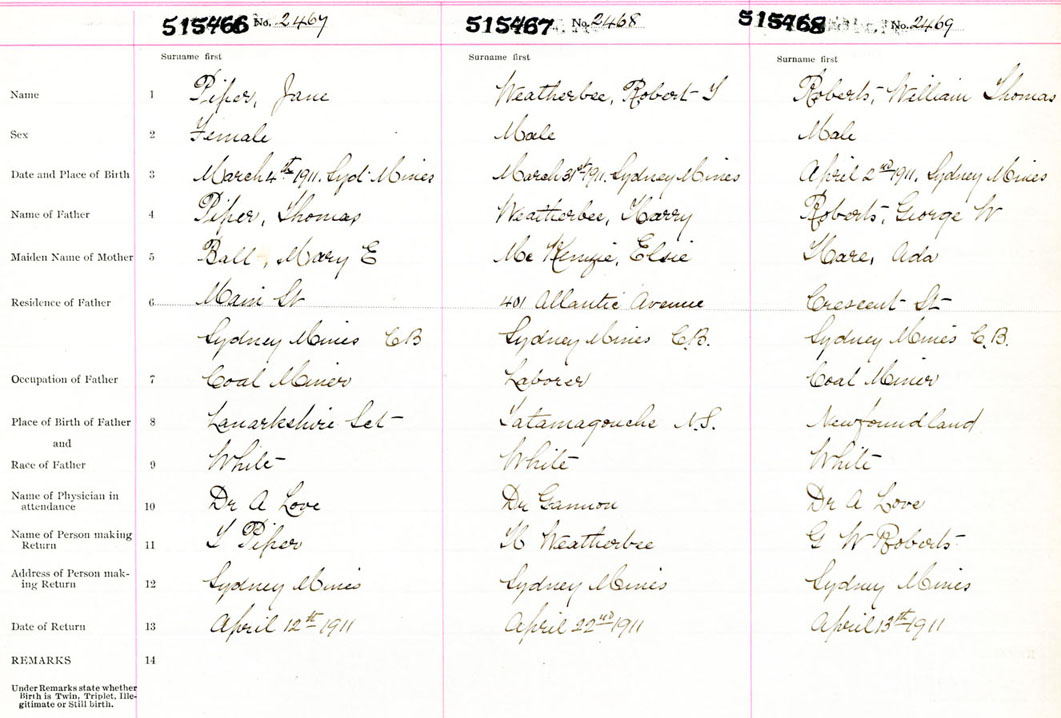 515466 No. 2467 515467 No. 2468 515468 No. 2469
Surname first Surname first Surname first
Name 1 Piper, Jane Weatherbee, Robert T Roberts, William Thomas
Sex 2 Female Male Male
Date and Place of Birth 3 March 4th 1911. Syd Mines March 31st 1911. Sydney Mines April 2nd 1911. Sydney Mines
Name of Father 4 Piper, Thomas Weatherbee, Harry Roberts, George W
Maiden Name of Mother 5 Ball, Mary E Mc Kenzie, Elsie Hare, Ada
Residence of Father 6 Main St 401 Atlantic Avenue Crescent St
Sydney Mines C B Sydney Mines C.B. Sydney Mines C.B.
Occupation of Father 7 Coal Miner Laborer Coal Miner
Place of Birth of Father 8 Lanarkshire Sct Tatamagouche N.S. Newfoundland
and
Race of Father 9 White White White
Name of Physician in
attendance 10 Dr A Love Dr Gannon Dr A Love
Name of Person making
Return 11 T Piper H Weatherbee G W Roberts
Address of Person mak-
ing Return 12 Sydney Mines Sydney Mines Sydney Mines
Date of Return 13 April 12th 1911 April 22nd 1911 April 13th 1911
REMARKS 14
Under Remarks state whether
Birth is Twin, Triplet, Ille-
gitimate or Still birth.